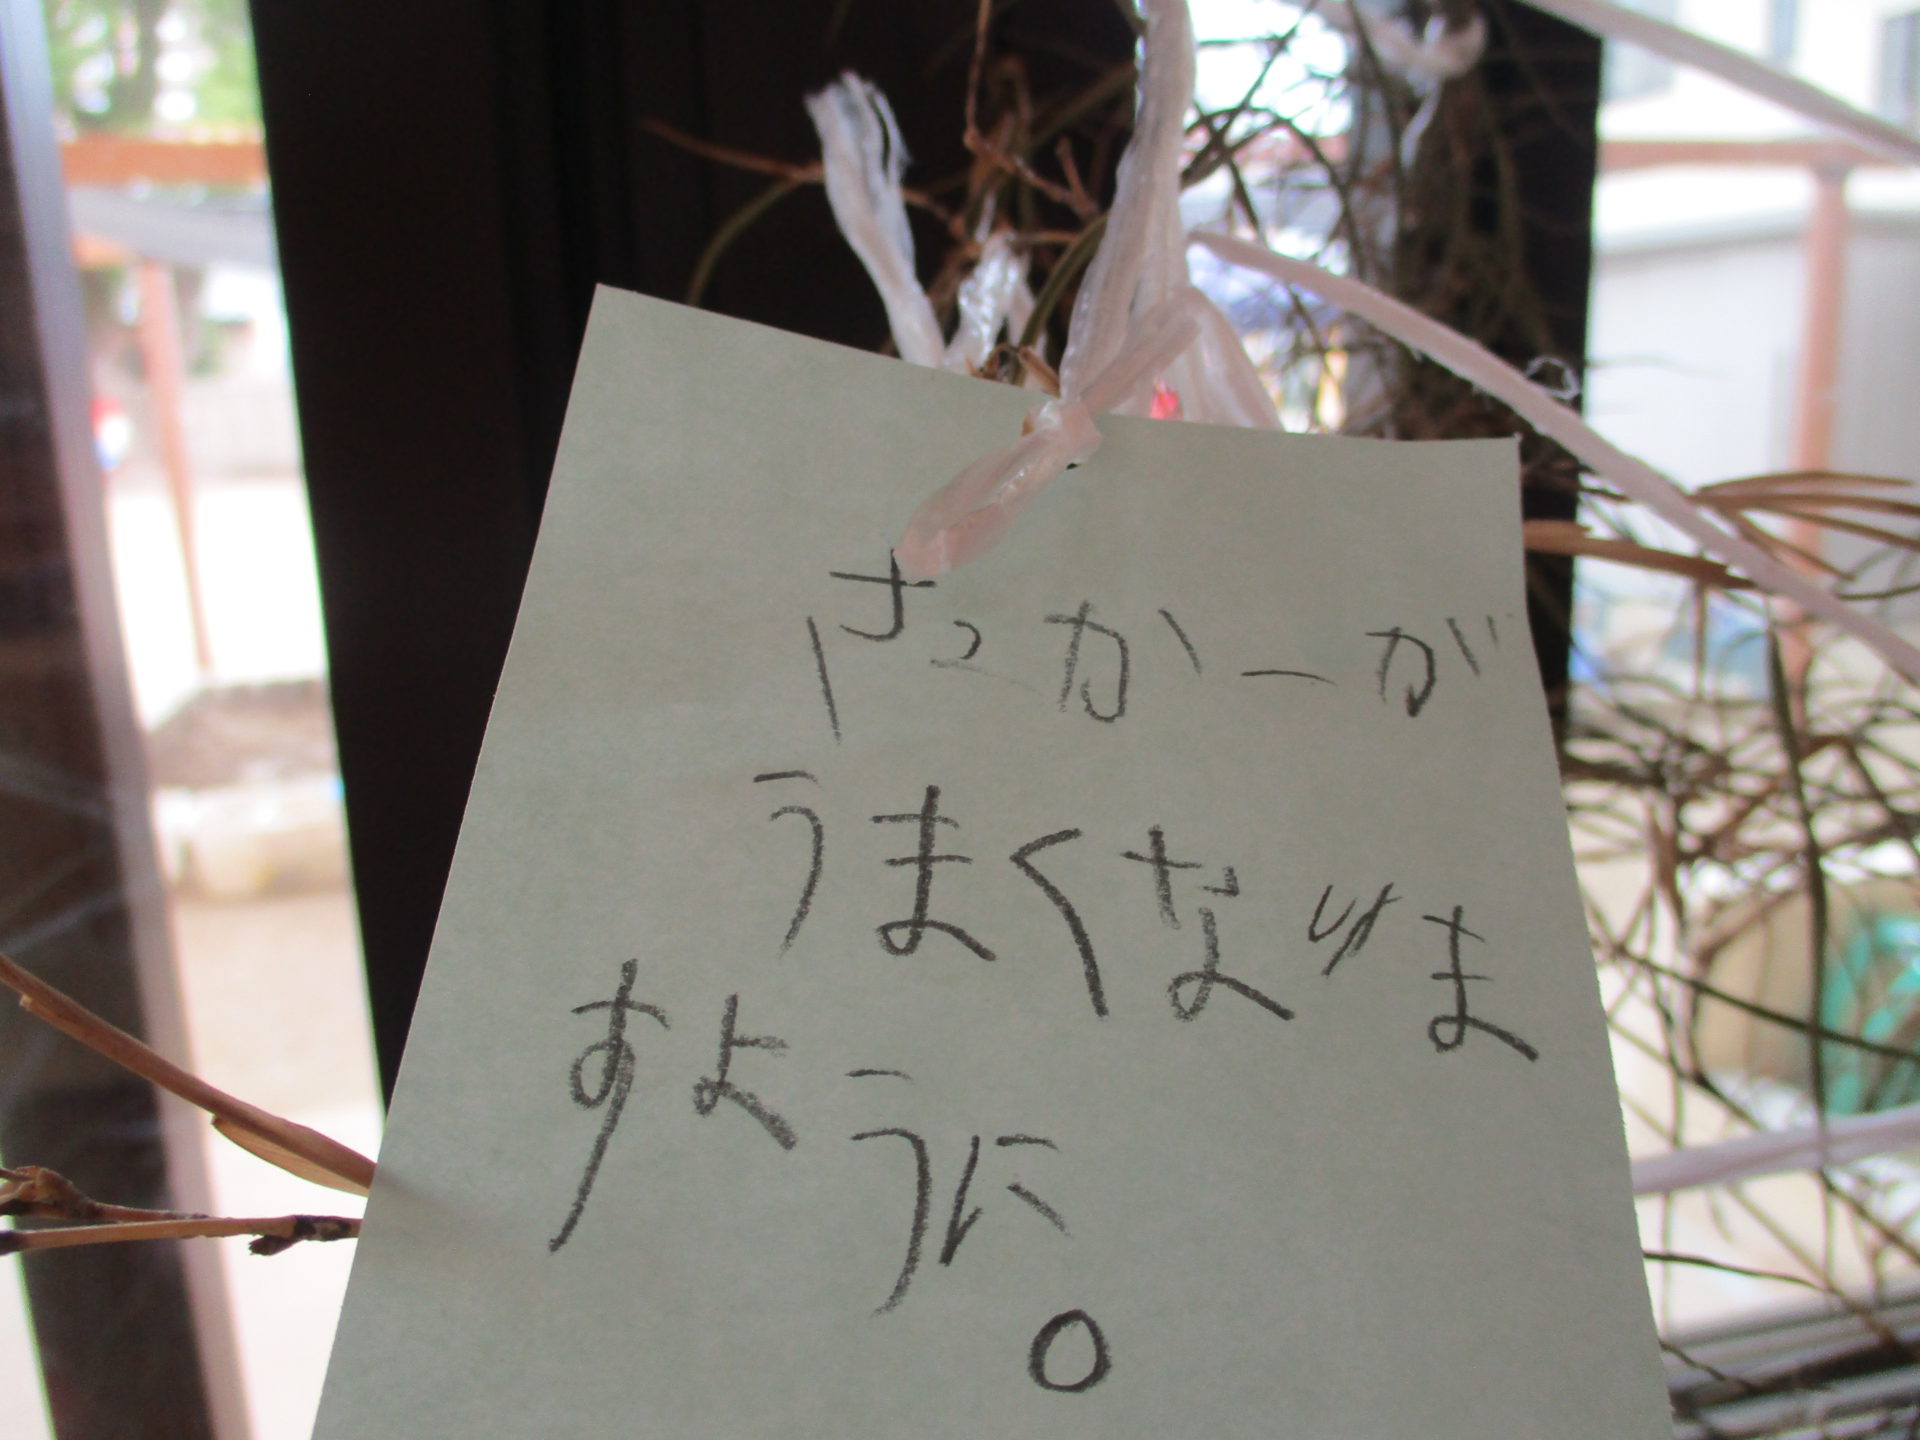 さっかーが
うまくなりま
すように。